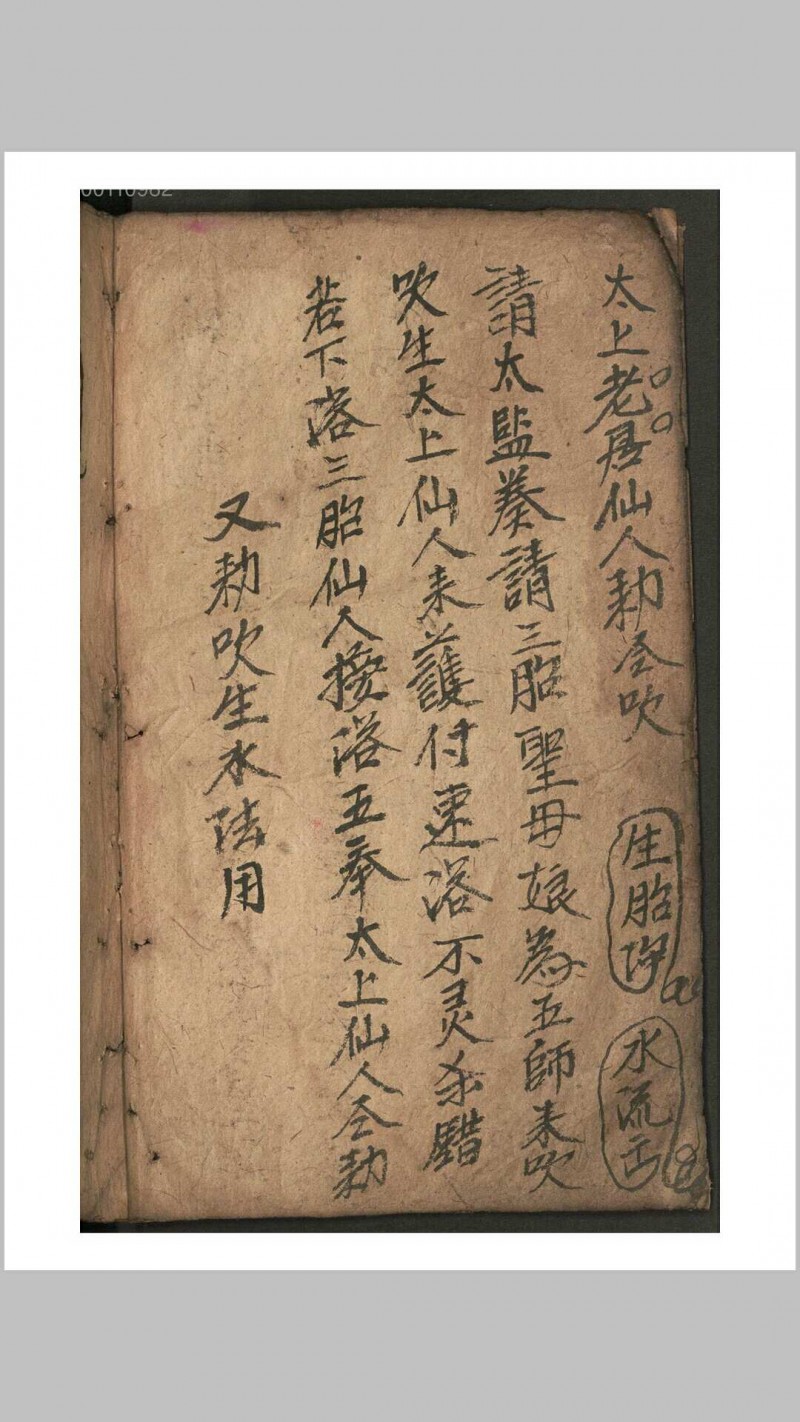 太上老君仙人勅令吹 生胎 水流
請太監奏請三胎聖母娘為五師来吹
吹生太上仙人来護付速落不灵杀錯
若下落三胎仙人接落五奉太上仙人令勅
又勅吹生水法用